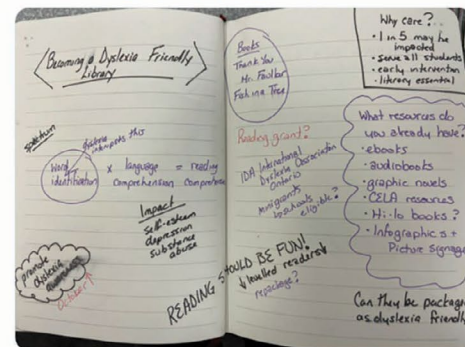 Becoming a Dyslexia Friendly
Library
spectrum
dyslexia
interrupts this
word
identification
x language
comprehension
= reading
comprehension
Impact
self-esteem
depression
substance
abuse
promote
dyslexia
awareness
October
READING SHOULD BE FUN!
↓ levelled readers ↓
repackage?
Books
Thank You
Mr. Faulker
Fish in a Tree
Reading grant?
IDA International
Dyslexia Association
Ontario
minigrants
eligible?
Why care?
• 1 in 5 may be
impacted
• serve all students
• early intervention
• literacy essential
What resources do
you already have?
• ebooks
• audiobooks
• graphic novels
• CELA resources
• Hi-lo books?
• Infographics +
Picture signage
Can they be packag
as dyslexia friendly